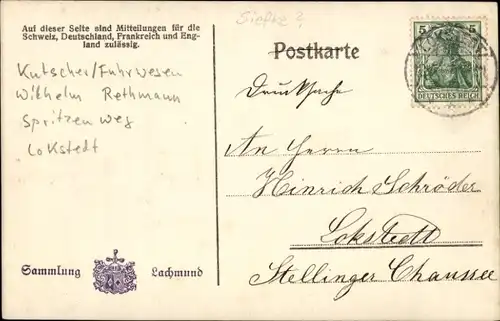 Auf dieser Seite sind Mitteilungen für die
Schweiz, Deutschland, Frankreich und Eng-
land zulässig.
Postkarte
5 5
DEUTSCHES REICH
Kutscher/Fuhrwesen
Wilhelm Rethmann
Spritzenweg
Lokstedt
Drucksache
An Herrn
Heinrich Schröder
Lokstedt
Stellinger Chaussee
Sammlung Lachmund